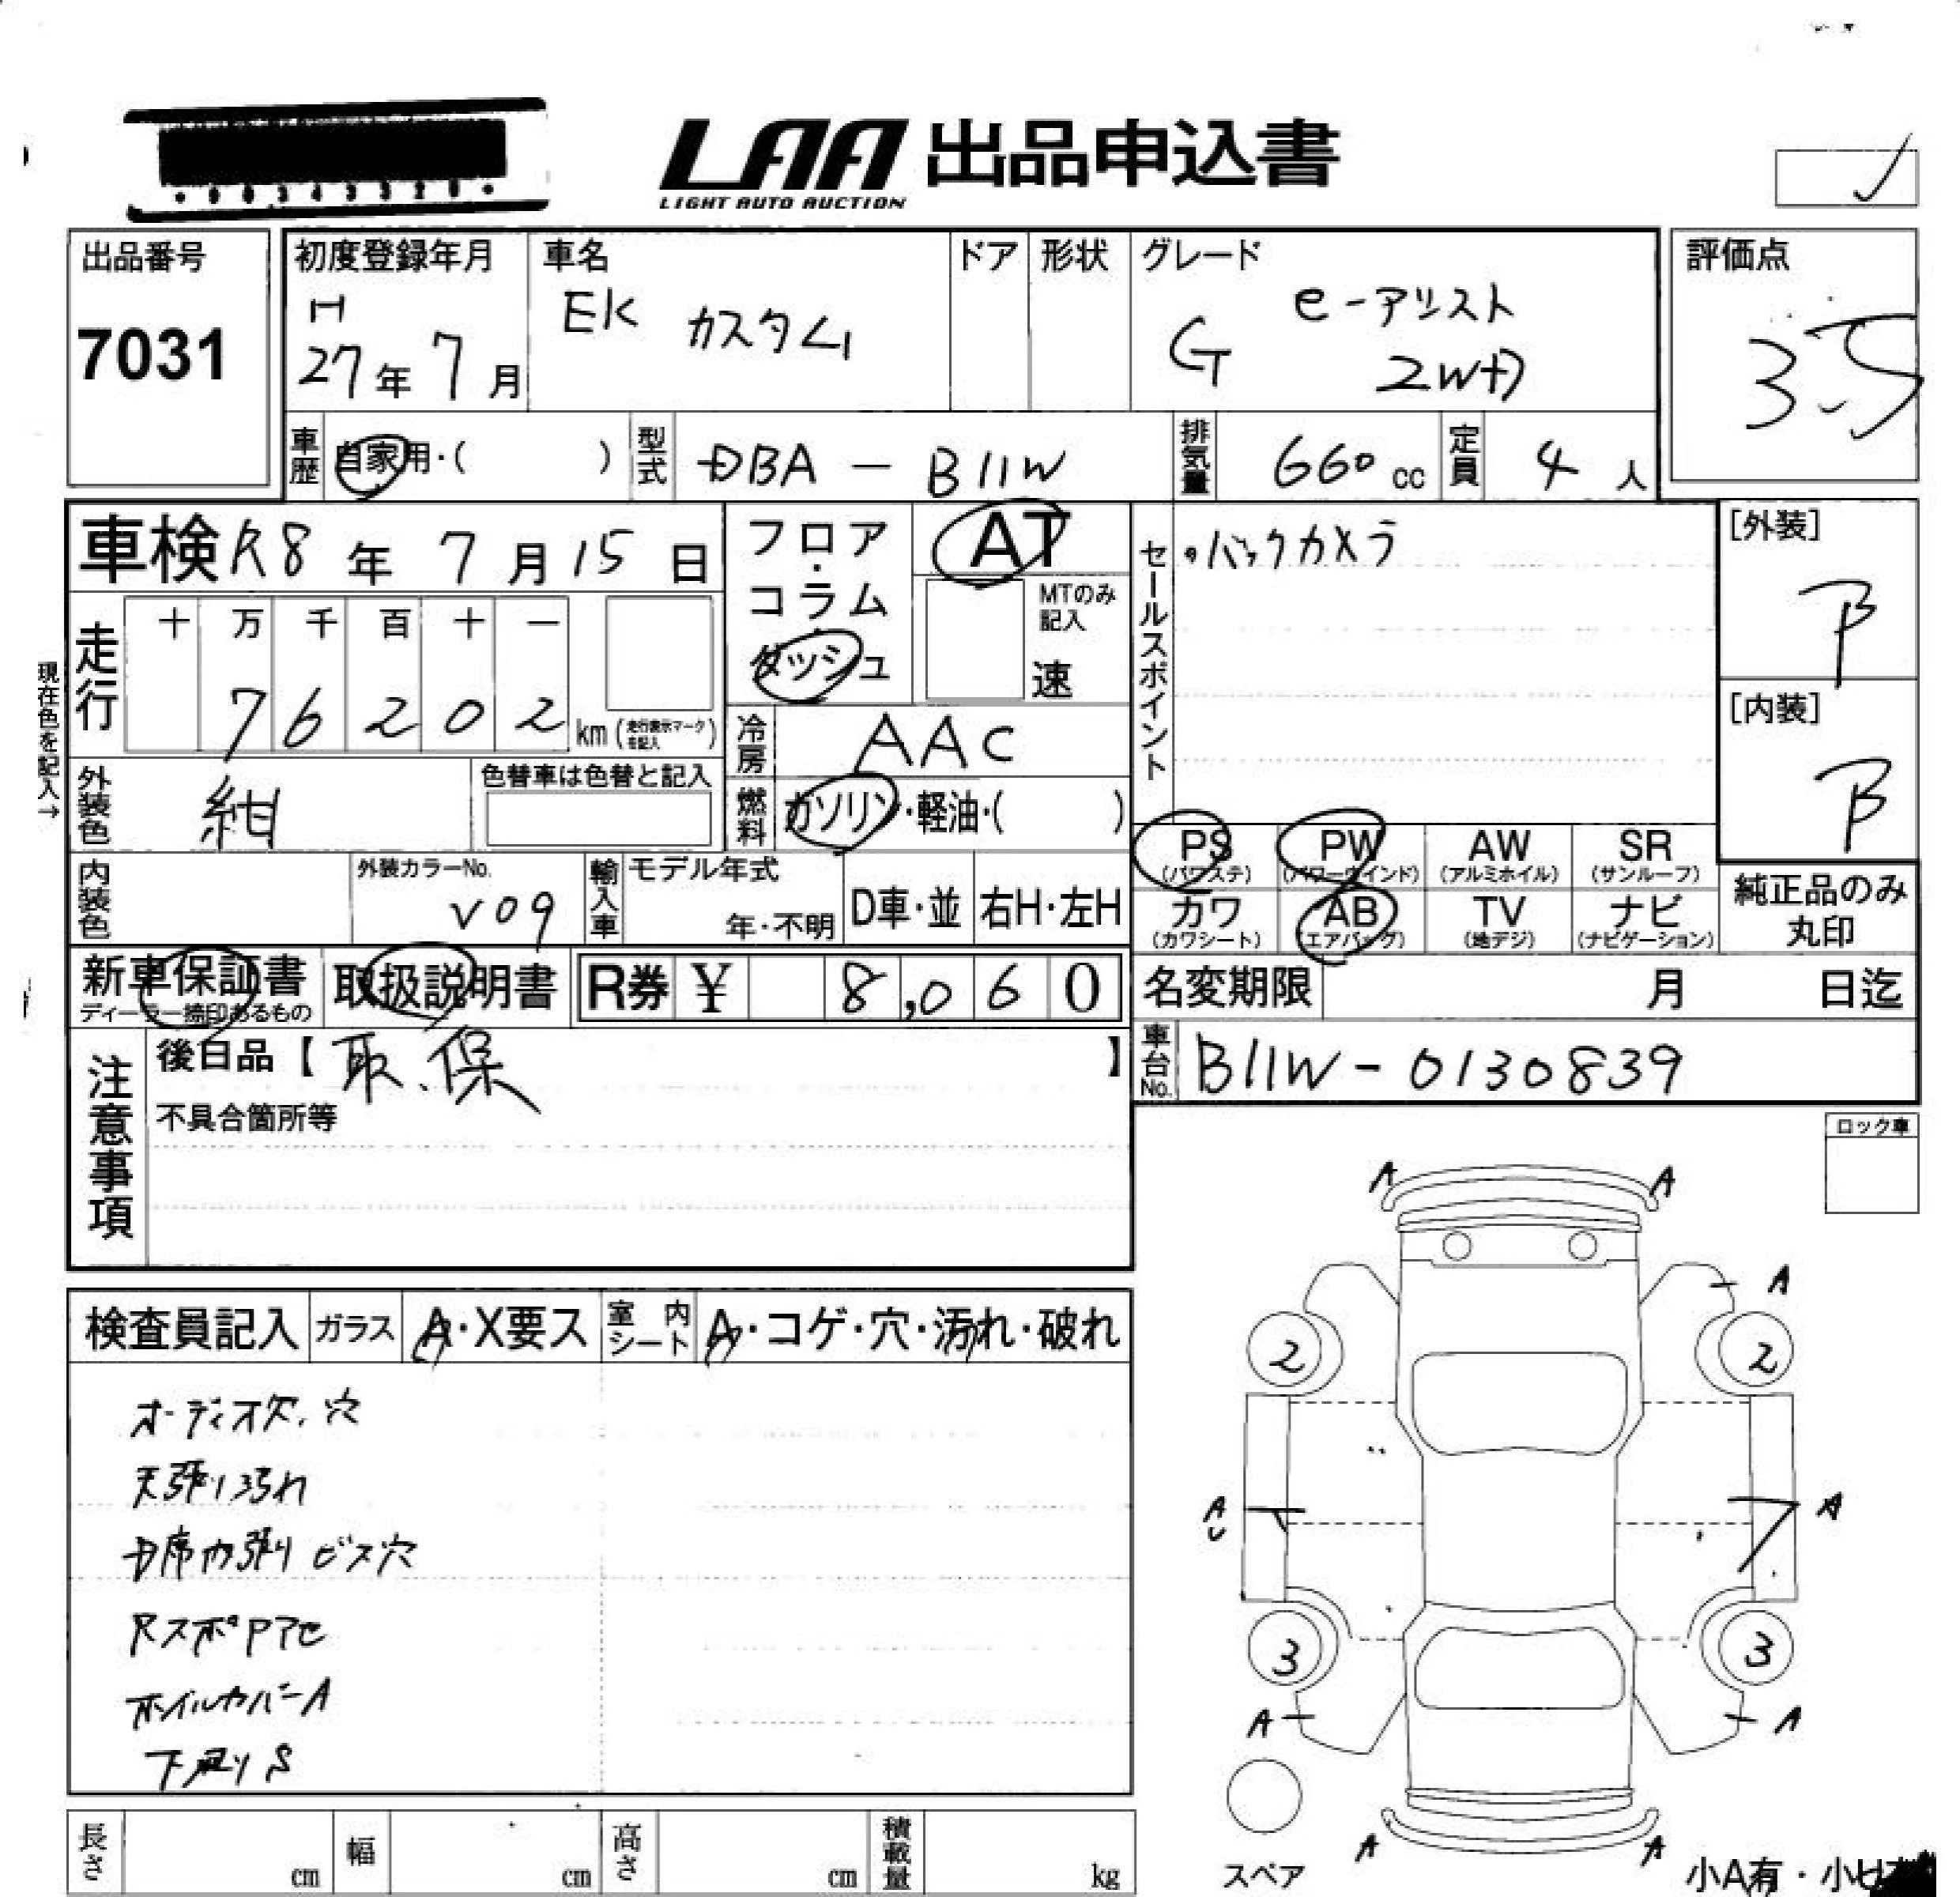 LAA 出品申込書
LIGHT AUTO AUCTION
出品番号
7031
初度登録年月
H
27年 7月
車名
EK カスタム
ドア
形状
グレード
G e-アシスト
2WD
評価点
3.5
車歴 自家用・( )
型式 DBA - B11W
排気量 660 cc
定員 4 人
車検 R8 年 7 月 15 日
フロア・コラム・ダッシュ
AT
MTのみ記入
速
セールスポイント
・バックカメラ
[外装]
B
[内装]
B
現在色を記入→
走行
十 万 千 百 十 一
7 6 2 0 2 km (走行表示マークを記入)
冷房 AAC
外装色 紺
色替車は色替と記入
燃料 ガソリン・軽油・( )
PS (パワステ)
PW (パワーウインド)
AW (アルミホイル)
SR (サンルーフ)
カワ (カワシート)
AB (エアバッグ)
TV (地デジ)
ナビ (ナビゲーション)
純正品のみ
丸印
内装色
外装カラーNo.
V09
輸入車
モデル年式
年・不明
D車・並
右H・左H
新車保証書
ディーラー捺印あるもの
取扱説明書
R券 ¥ 8,060
名変期限 月 日迄
車台No. B11W-0130839
注意事項
後日品【 取、保 】
不具合箇所等
ロック車
検査員記入
ガラス A・X要ス
室内シート A・コゲ・穴・汚れ・破れ
オーディオ欠、穴
天張り汚れ
D席内張り ビス穴
RスポPアセ
ホイルカバーA
下廻りS
A A
A
2 2
A
U
A
3 3
A A
A A
スペア
小A有・小U
長さ cm
幅 cm
高さ cm
積載量 kg